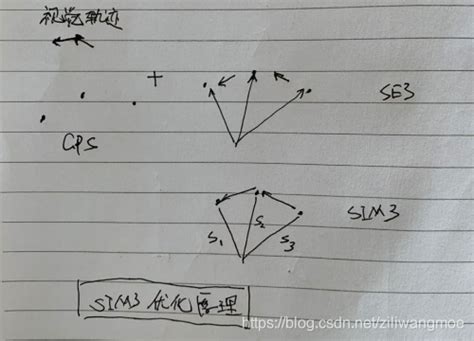 视觉轨迹
+
SE3
GPS
SIM3
S1
S2
S3
SIM3 优化原理
https://blog.csdn.net/ziliwangmoe